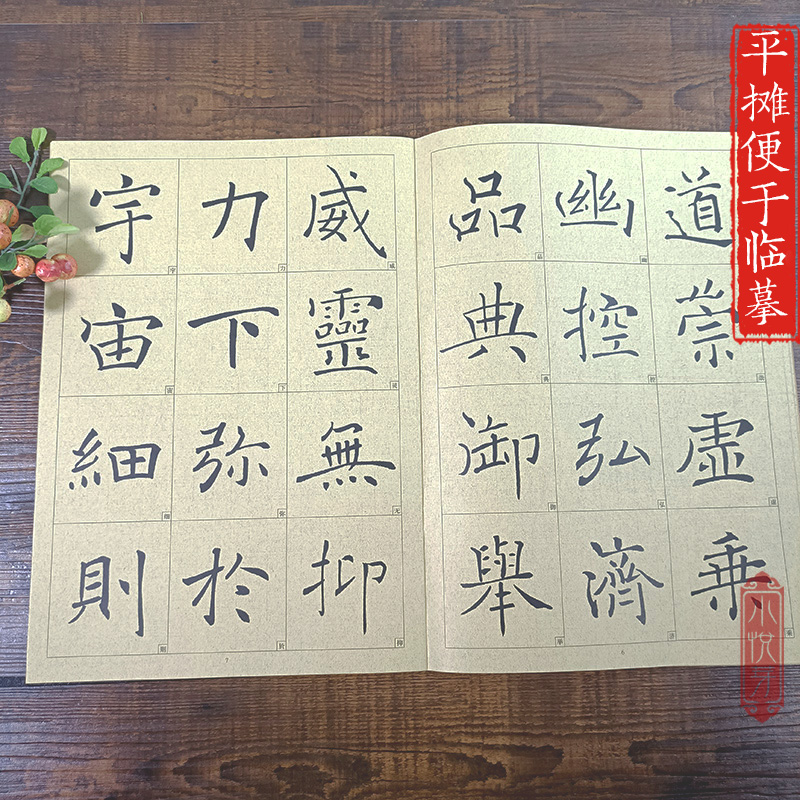 平摊便于临摹
道崇虛乘
幽控弘濟
品典御舉
6
威靈無抑
力下弥於
宇宙細則
7